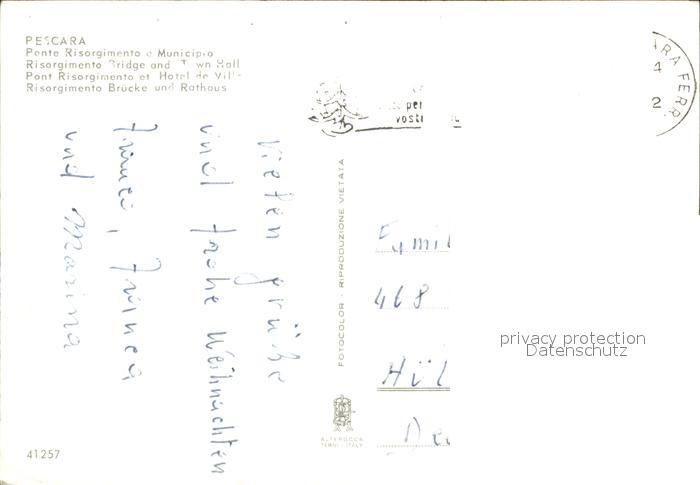 PESCARA
Ponte Risorgimento e Municipio
Risorgimento Bridge and Town Hall
Pont Risorgimento et Hotel de Ville
Risorgimento Brücke und Rathaus
per
vostri
ARA FERR
4
2
Vielen grüße
und frohe Weihnachten
und Marina
FOTOCOLOR - RIPRODUZIONE VIETATA
Famil
468
Hül
De
privacy protection
Datenschutz
ALTEROCCA
TERNI - ITALY
41257